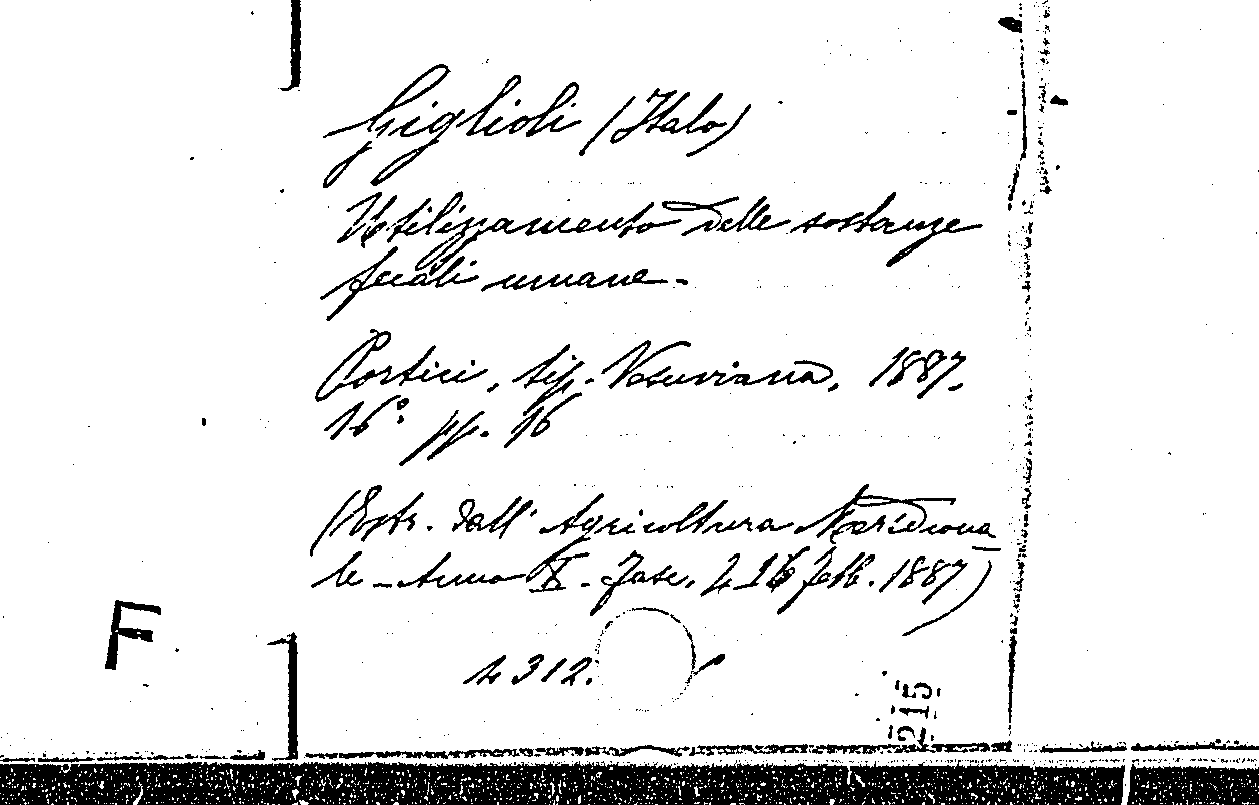 Giglioli (Italo)
Utilizzamento delle sostanze
fecali umane.
Portici, tip. Vesuviana, 1887.
16° pp. 16
(Estr. dall' Agricoltura Meridiona
le - Anno X - Fasc. 4 16 febb. 1887)
4312.
F
215